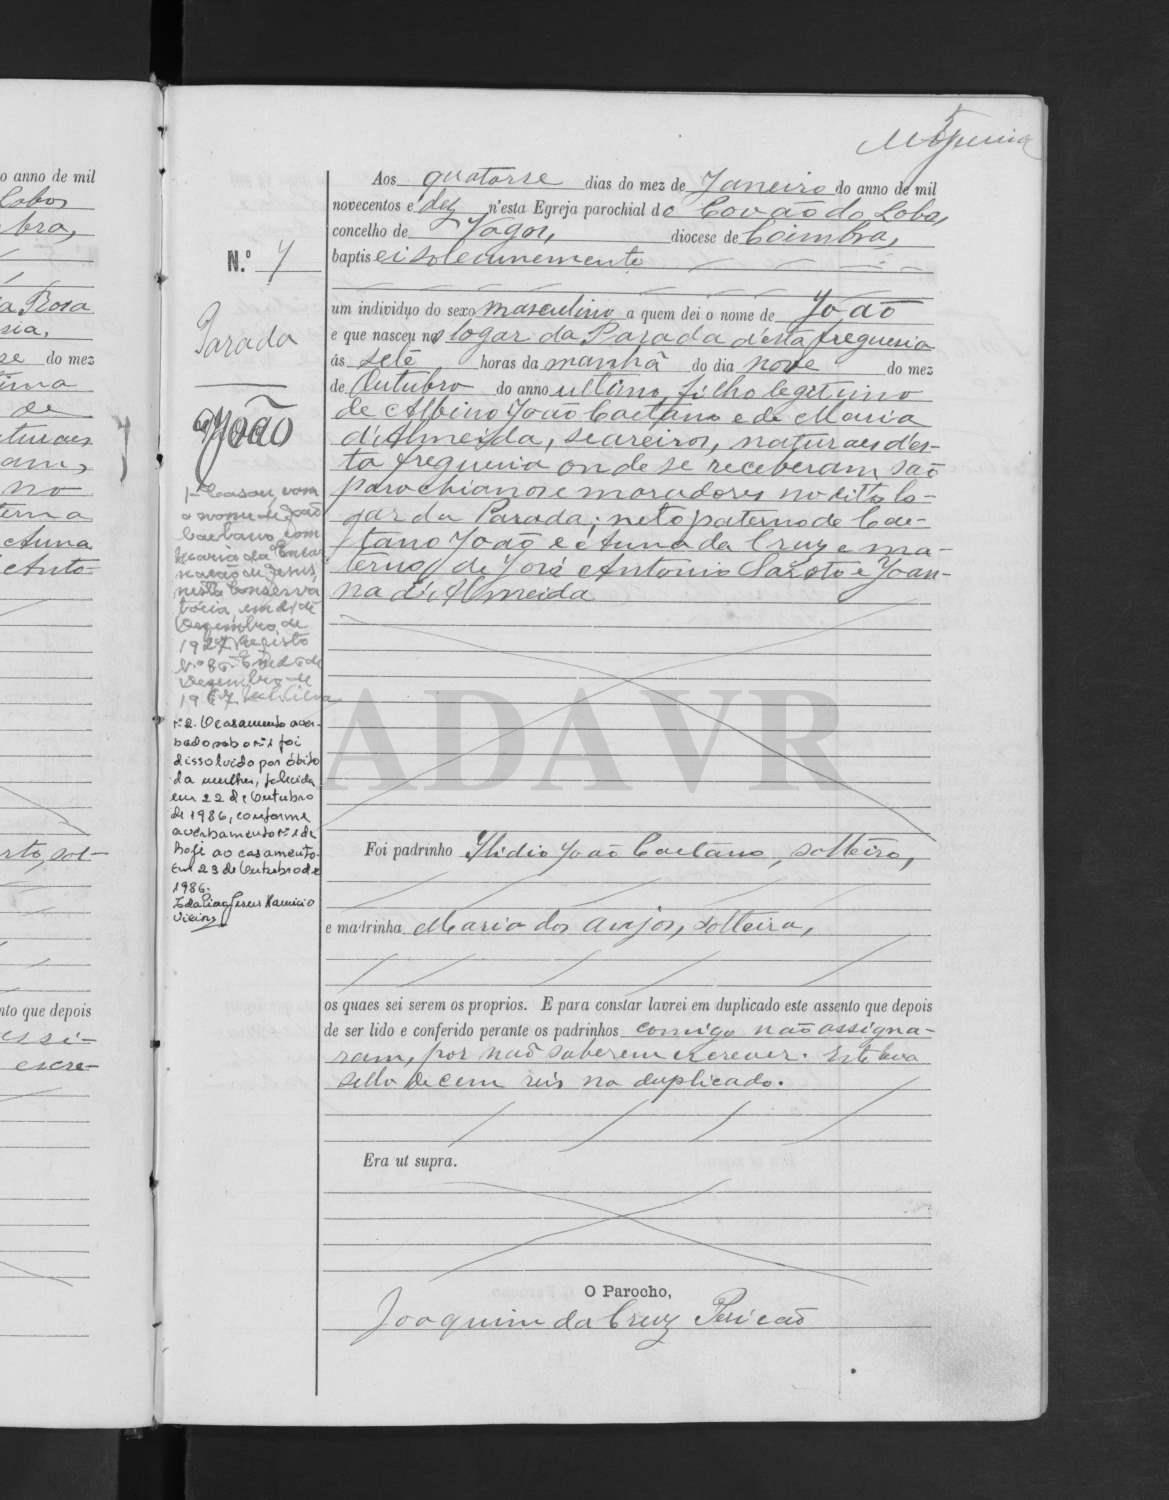 o anno de mil
Lobos
bra,
a Rosa
sia,
se do mez
tima
de
aturaes
am,
no
terna
Anna
Anto-
rto, sol-
nto que depois
assi-
escre-
5
Aos quatorse dias do mez de Janeiro do anno de mil
novecentos e dez n'esta Egreja parochial do Covão do Lobo,
concelho de Vagos, diocese de Coimbra,
baptisei solemnemente
N.º 7
um individuo do sexo masculino a quem dei o nome de João
e que nasceu no logar da Parada d'esta freguesia
ás sete horas da manhã do dia nove do mez
de Outubro do anno ultimo, filho legitimo
de Albino João Caetano e de Maria
d'Almeida, seareiros, naturaes d'es-
ta freguesia onde se receberam são
parochianos e moradores no dito lo-
gar da Parada; neto paterno de Cae-
tano João e Anna da Cruz e ma-
terno de José Antonio e Joan-
na d'Almeida
Parada
João
1- Casou, com
o nome de João
Caetano, com
Maria da Encar
nação de Jesus,
nesta Conserva
tória, em de
Dezembro de
1927. Registo
N.º 86. Em de
Dezembro de
19
n.º 2. O casamento aver-
bado sob o n.º 1 foi
dissolvido por óbito
da mulher, falecida
em 22 de Outubro
de 1986, conforme
averbamento n.º 1 de
hoje ao casamento.
Em 23 de Outubro de
1986.
ADAVR
Foi padrinho Ilidio João Caetano, solteiro,
e madrinha Maria dos Anjos, solteira,
os quaes sei serem os proprios. E para constar lavrei em duplicado este assento que depois
de ser lido e conferido perante os padrinhos comigo não assigna-
ram, por não saberem escrever. Esteve
sello de cem reis no duplicado.
Era ut supra.
O Parocho,
Joaquim da Cruz Pericão